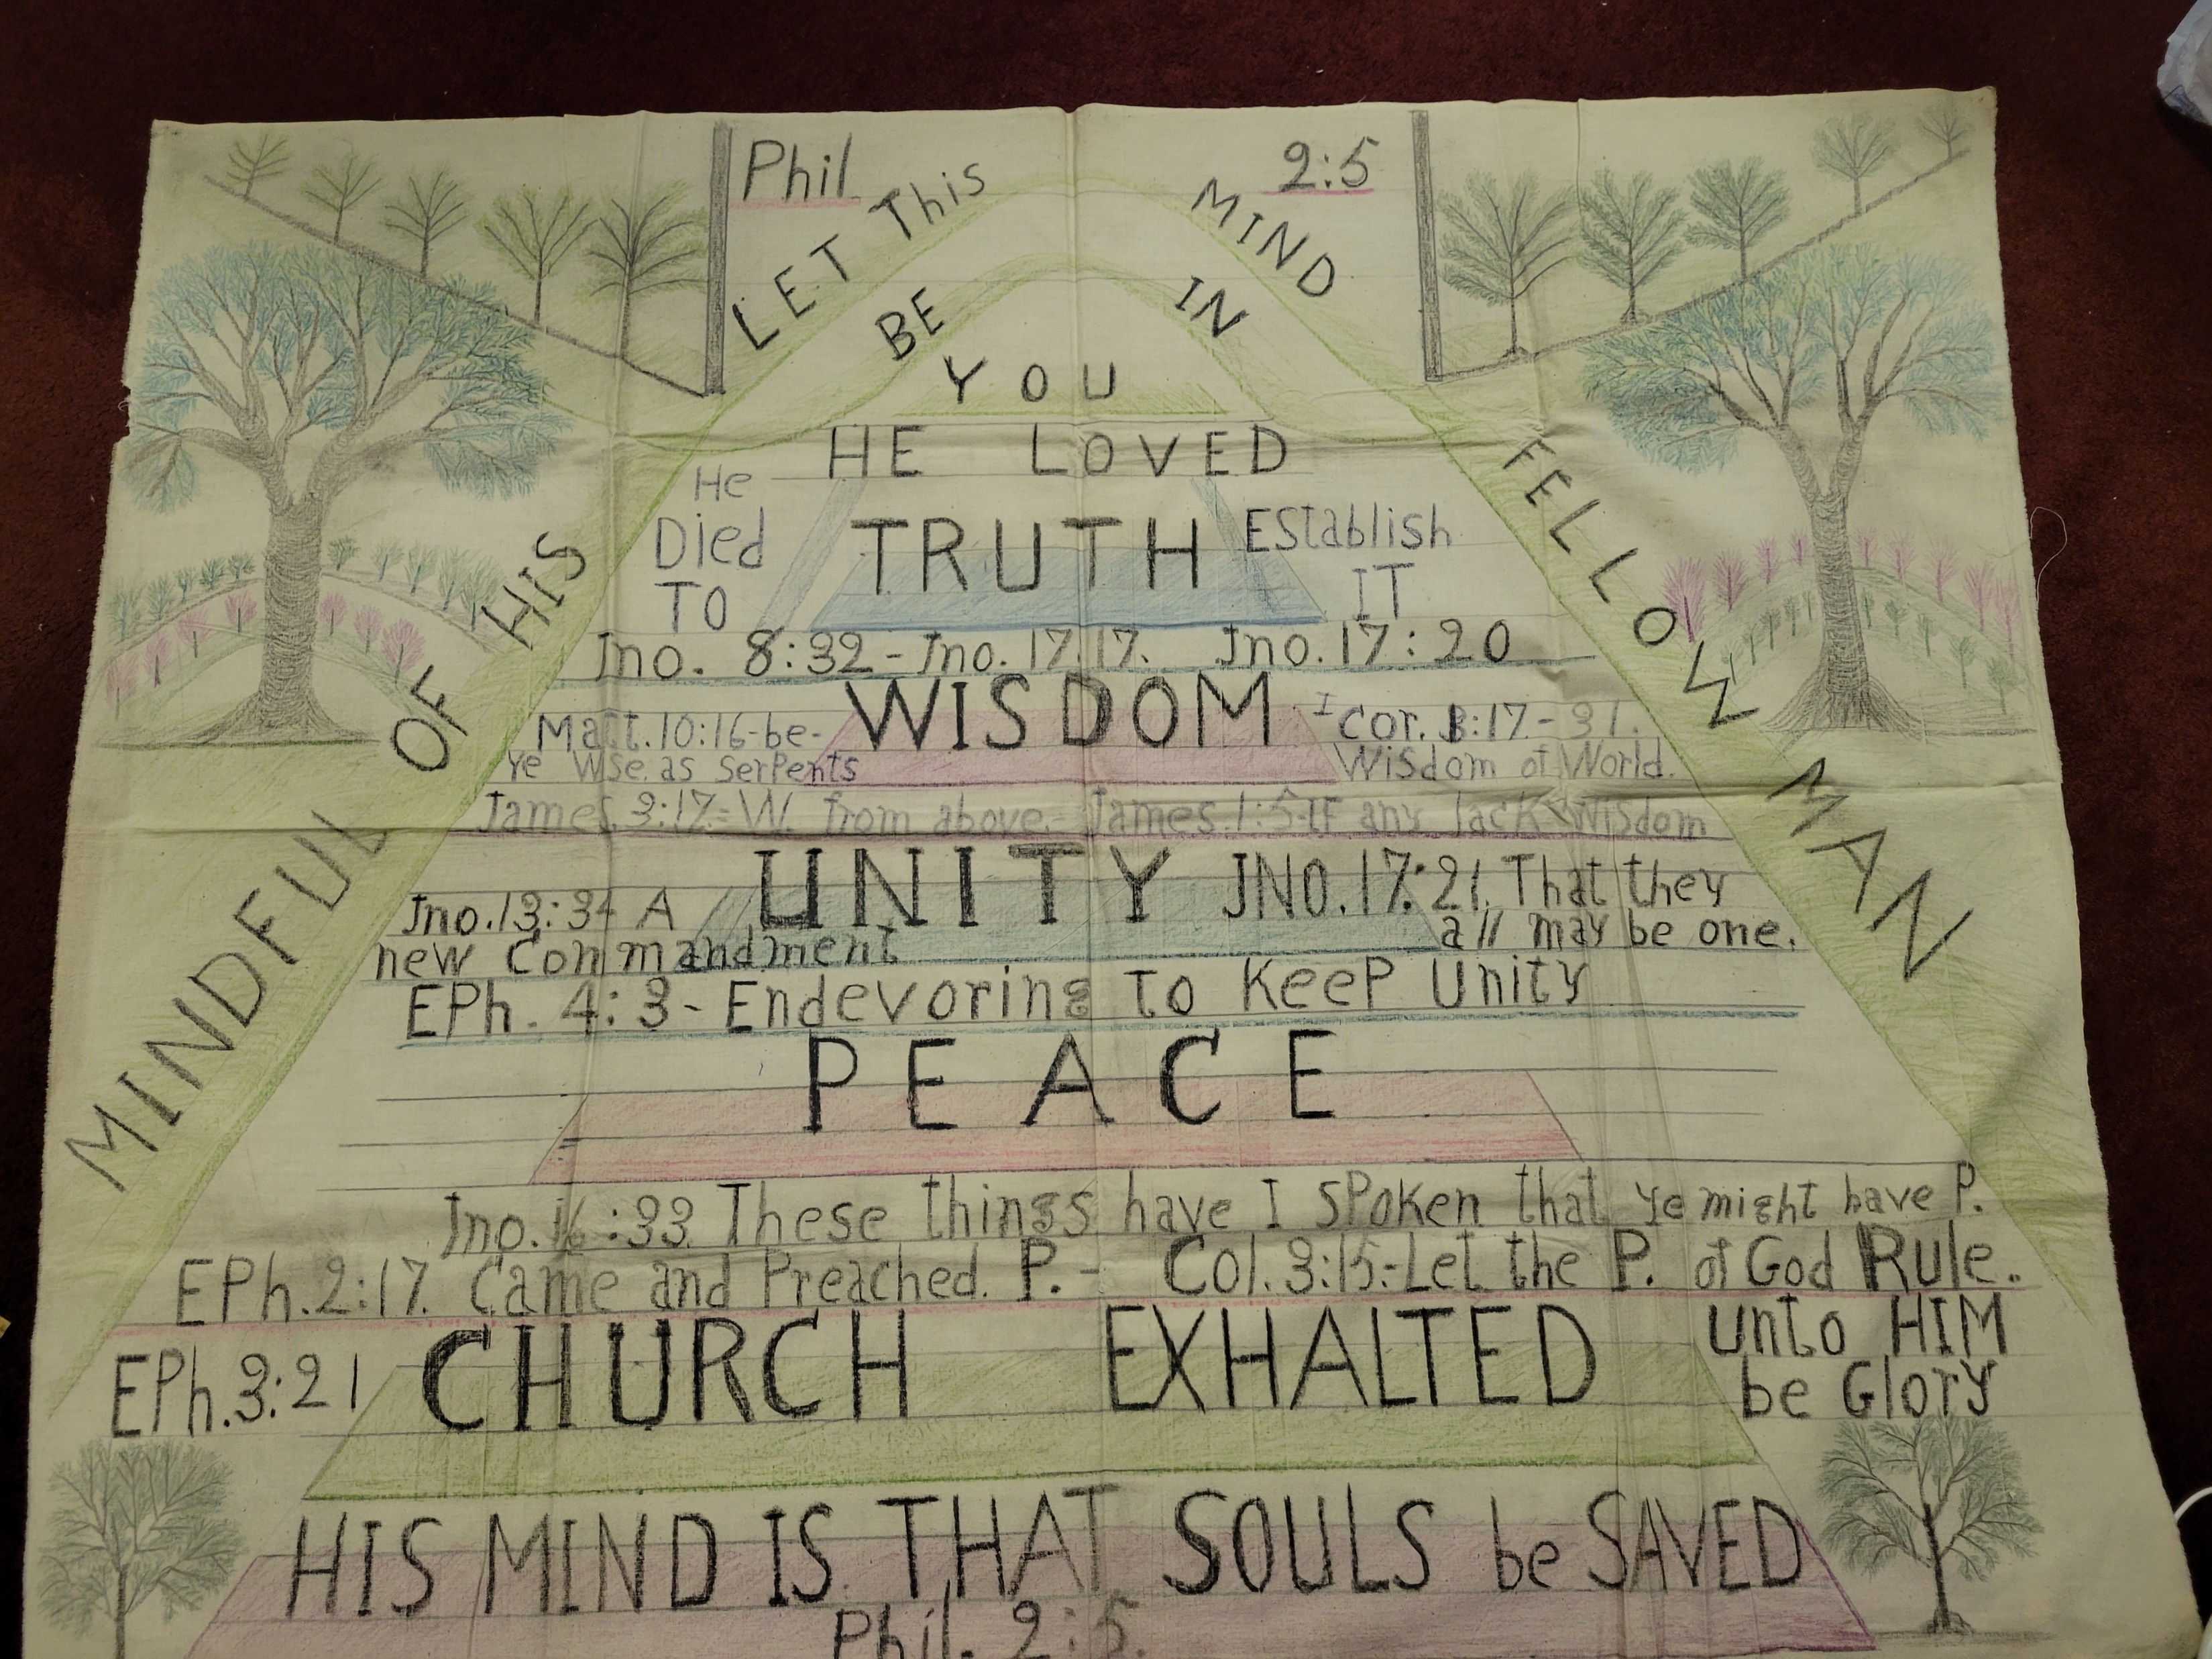 Phil 2:5
LET This MIND
BE IN
YOU
HE LOVED
He Died TO
TRUTH
Establish IT
Jno. 8:32 - Jno. 17.17. Jno. 17:20
WISDOM
Matt. 10:16-be-
Ye Wse as SerPents
I Cor. 3:17-31.
Wisdom of World.
James 3:17-W. from above.- James. 1:5-If any lack Wisdom
UNITY
Jno. 13:34 A
new Commandment
JNO. 17:21. That they
all may be one.
EPh. 4:3- Endevoring to KeeP Unity
PEACE
Jno. 16:33 These things have I SPoken that Ye might have P.
EPh. 2:17. Came and Preached. P. - Col. 3:15.-Let the P. of God Rule.
EPh. 3:21 CHURCH EXHALTED
unto HIM
be Glory
HIS MIND IS THAT SOULS be SAVED
Phil. 2:5.
MINDFUL OF HIS
FELLOW MAN